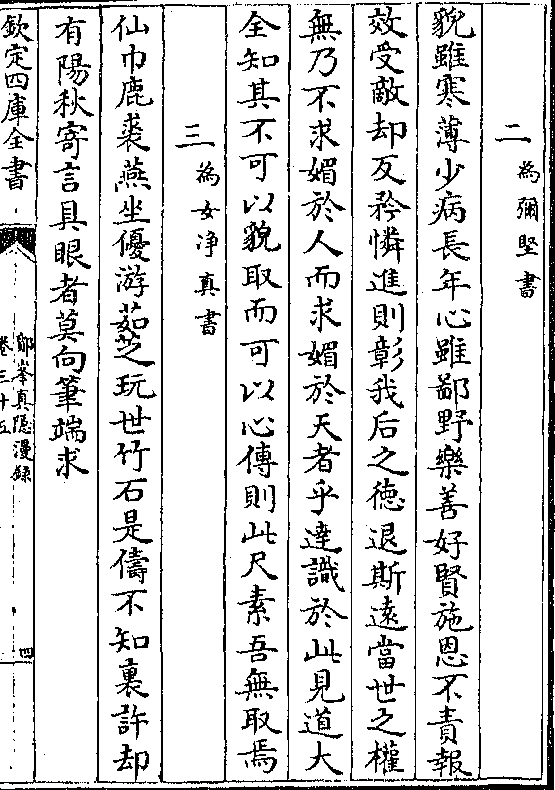 二為彌堅書
貌雖寒薄少病長年心雖鄙野樂善好賢施恩不責報
效受敵却反矜憐進則彰我后之德退斯遠當世之權
無乃不求媚於人而求媚於天者乎達識於此見道大
全知其不可以貌取而可以心傳則此尺素吾無取焉
三為女淨真書
仙巾鹿裘燕坐優游茹芝玩世竹石是儔不知裏許却
有陽秋寄言具眼者莫向筆端求
欽定四庫全書
鄮峯真隱漫錄
卷三十五
四